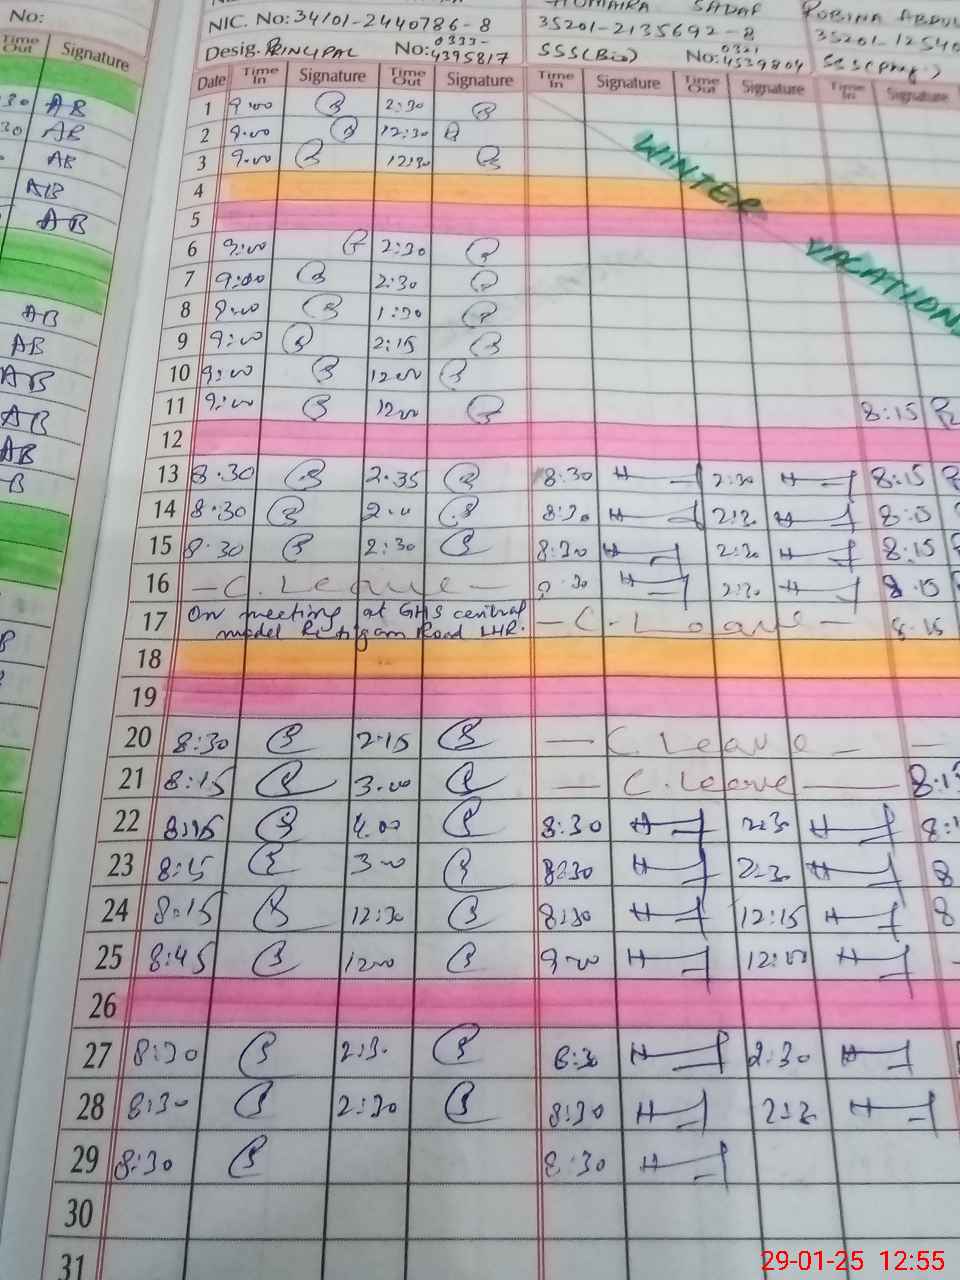 No:
NIC. No: 34101-2440786-8 35201-2135692-8
HUMAIRA SADAF ROBINA ABDUL
35201-12540
Desig. PRINCIPAL No: 0333-4395817 SSS(Bio) No: 0321 4539804
Time Out Signature
Date Time In Signature Time Out Signature Time In Signature Time Out Signature Time In Signature
1 9:00 2:30
2 9:00 12:30
3 9:00 12:30
WINTER
4
5
6 9:00 2:30
VACATIONS
7 9:00 2:30
8 9:00 1:30
9 9:00 2:15
10 9:00 12:00
11 9:00 12:00 8:15
12
13 8:30 2:35 8:30 2:30 8:15
14 8:30 8:30 2:30
15 8:30 2:30 8:30 2:30 8:15
16 - C. Leave - 2:30
17 On meeting at GHS central model Road LHR. - C. Leave - 8:15
18
19
20 8:30 2:15 - C. Leave -
21 8:15 3:00 - C. Leave -
22 8:15 4:00 8:30 2:30
23 8:15 3:00 8:30 2:30
24 8:15 12:30 8:30 12:15
25 8:45 12:00 9:00 12:00
26
27 8:30 2:30 8:30 2:30
28 8:30 2:30 8:30 2:30
29 8:30 8:30
30
31
AB
AB
AB
AB
AB
AB
AB
AB
AB
AB
29-01-25 12:55